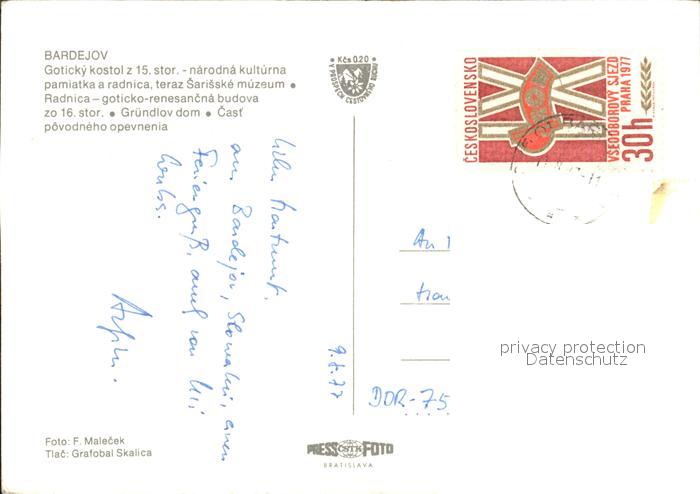 BARDEJOV
Gotický kostol z 15. stor. - národná kultúrna
pamiatka a radnica, teraz Šarišské múzeum •
Radnica – goticko-renesančná budova
zo 16. stor. • Gründlov dom • Časť
pôvodného opevnenia
Kčs 0.20
ČESKOSLOVENSKO
ROH
VŠEODBOROVÝ SJEZD
PRAHA 1977
30h
aus Bardejov, Slowakei, einen
Feriengruß, auch von
9.8.77
An
DDR-75
privacy protection
Datenschutz
Foto: F. Maleček
Tlač: Grafobal Skalica
PRESS ČSTK FOTO
BRATISLAVA